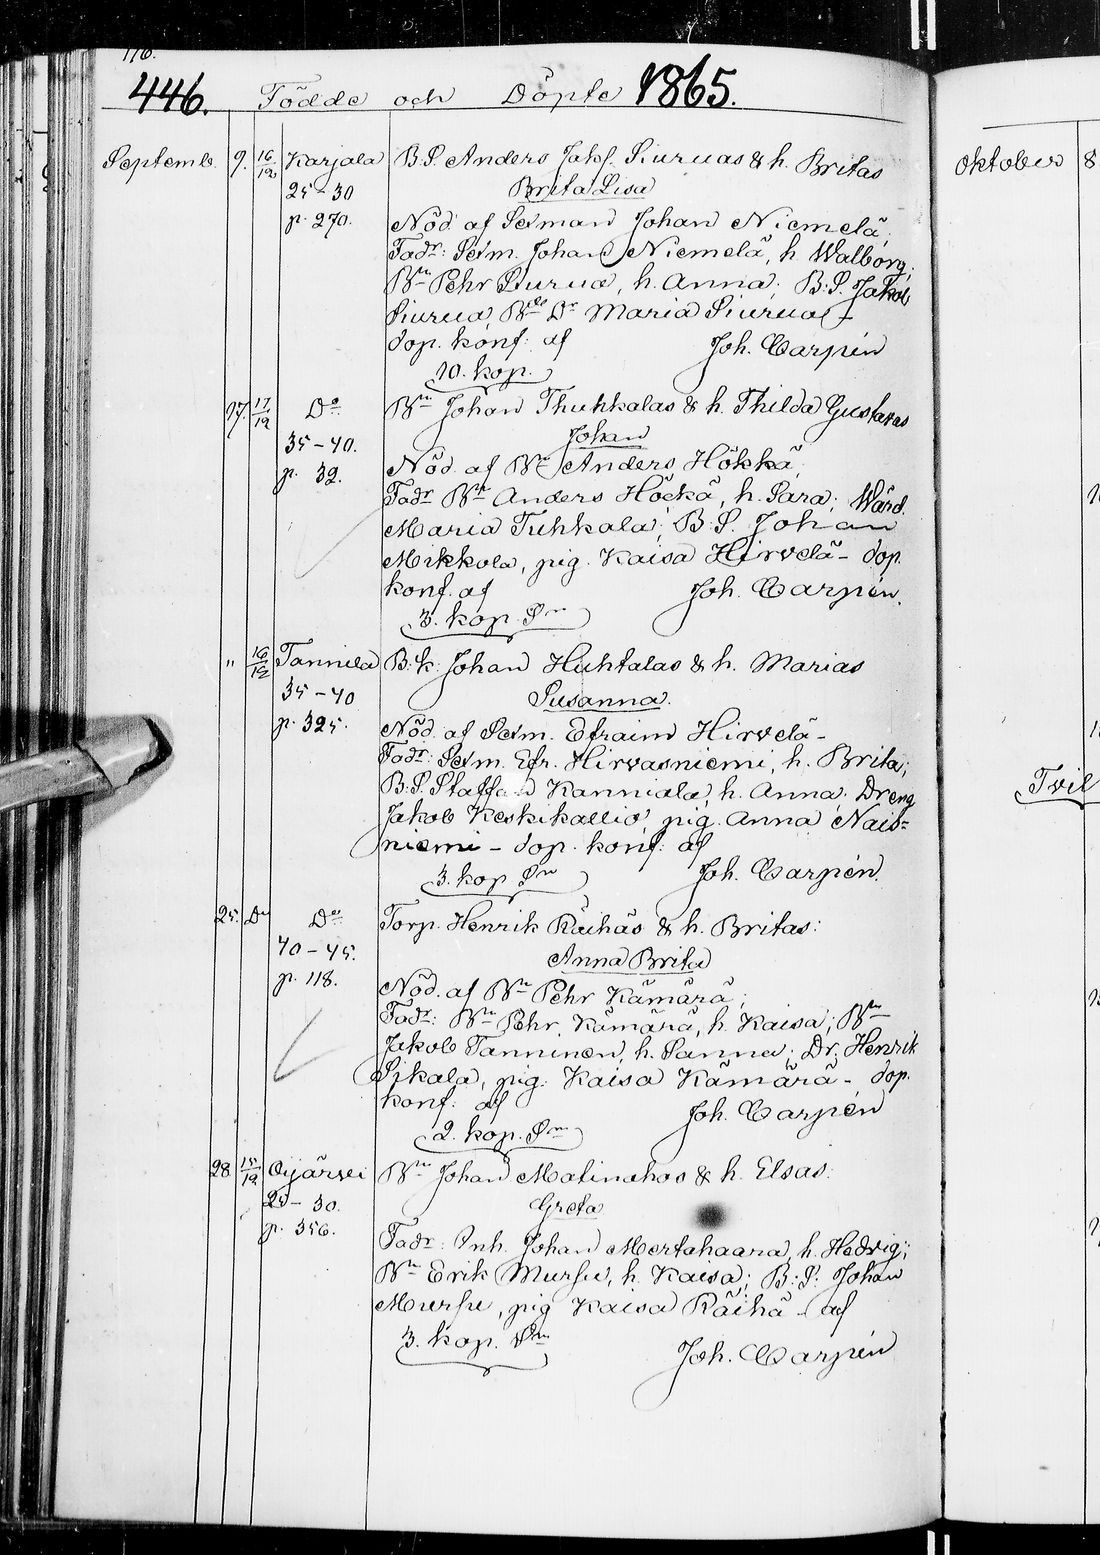 116.
446. Födde och Döpte 1865.
Septemb. 9. 16/12 Karjala B.S. Anders Jakf. Siuruas & h. Britas
25-30 Brita Lisa
p. 270. Nöd. af Sexman Johan Niemelä;
Fadr: Sexm. Johan Niemelä, h. Walborg;
Bn Pehr Siurua, h. Anna; B.S. Jakob
Siurua, Bde Dr Maria Siurua -
dop. konf. af Joh. Carpén
10. kop.
17. 17/12 Do Bn Johan Thuhkalas & h. Thilda Gustavas
35-40. Johan
p. 32. Nöd. af Bn Anders Hökkä;
Fadr Bn Anders Höckä, h. Sara; Wärd.
Maria Tuhkala; B.S. Johan
Mikkola, pig. Kaisa Hirvelä - dop.
konf. af Joh. Carpén.
3. kop. Sm
" 16/12 Tannila B.k. Johan Huhtalas & h. Marias
35-40 Susanna.
p. 325. Nöd. af Sexm. Efraim Hirvelä -
Fadr: Sexm. Efr. Hirvasniemi, h. Brita;
B.S. Staffan Kanniala, h. Anna; Dreng
Jakob Keskikallio, pig. Anna Nais=
niemi - dop. konf. af
3. kop Sm Joh. Carpén.
25. Do Do Torp. Henrik Räihäs & h. Britas:
40-45. Anna Brita
p. 118. Nöd. af Bn Pehr Kämärä;
Fadr: Bn Pehr Kämärä, h. Kaisa; Bn
Jakob Tanninen, h. Sanna; Dr. Henrik
Sikala, pig. Kaisa Kämärä - dop.
konf. af Joh. Carpén
2. kop. Sm
28 15/12 Oijärvi Bn Johan Matinahos & h. Elsas:
25-30. Greta
p. 356. Fadr: Inh. Johan Mertahaara, h. Hedvig;
Bn Erik Mursu, h. Kaisa; B.S. Johan
Mursu, pig Kaisa Räihä - af
3. kop. Sm Joh. Carpén
Oktober 8
Tvil